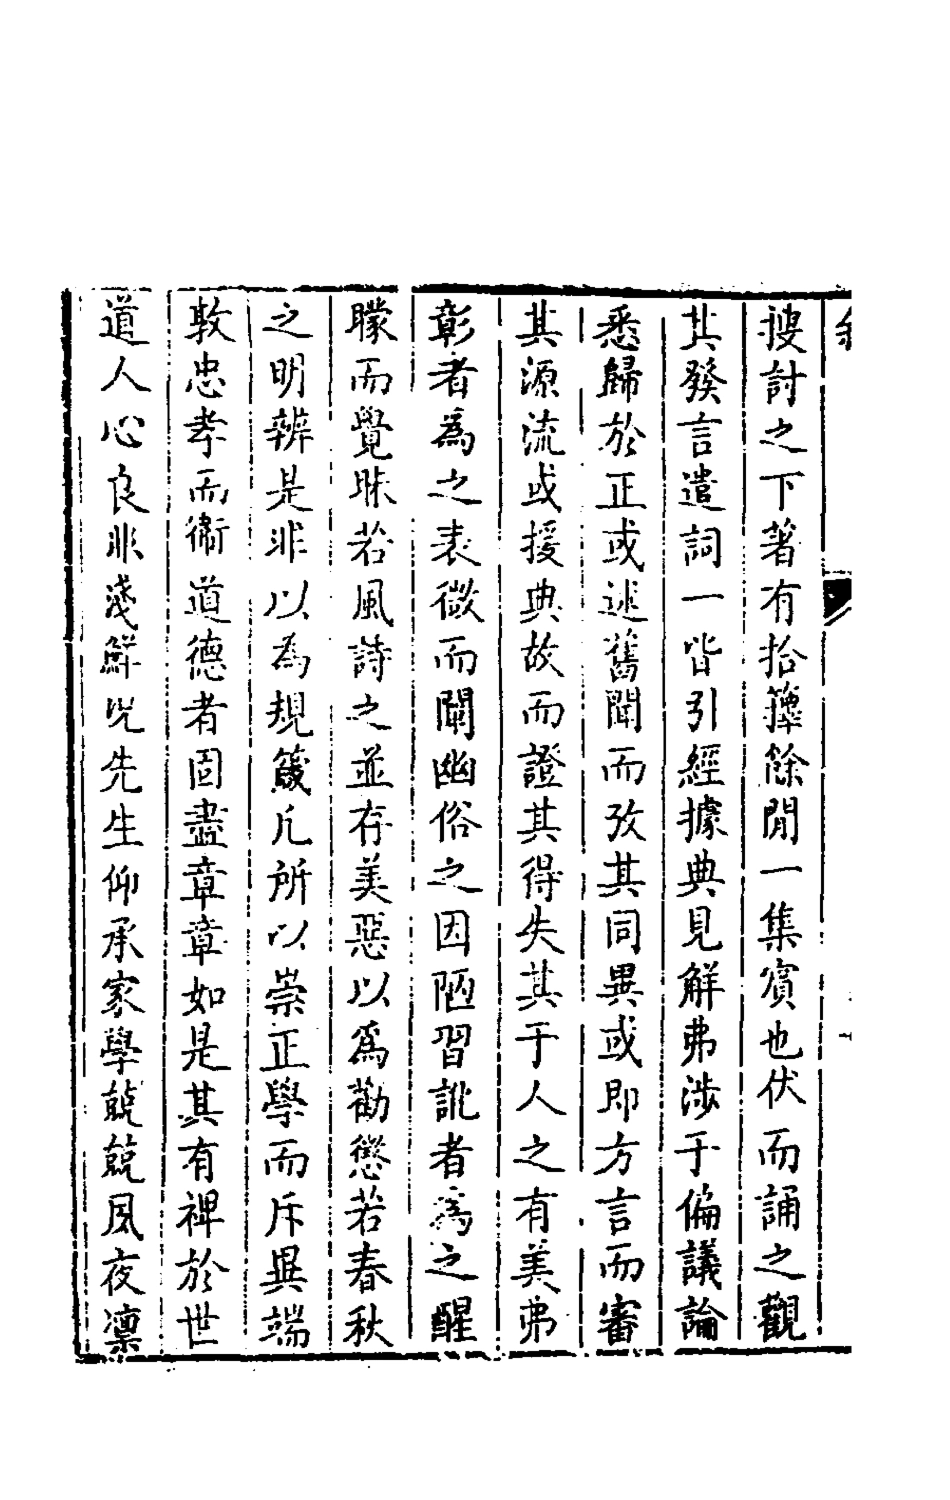 搜討之下著有拾籜餘閒一集賓也伏而誦之觀
其發言遣詞一皆引經據典見解弗涉于偏議論
悉歸於正或述舊聞而攷其同異或即方言而審
其源流或援典故而證其得失其于人之有美弗
彰者為之表微而闡幽俗之因陋習訛者為之醒
矇而覺眛若風詩之並存美惡以為勸懲若春秋
之明辨是非以為規箴凡所以崇正學而斥異端
敦忠孝而衛道德者固盡章章如是其有裨於世
道人心良非淺鮮況先生仰承家學兢兢夙夜凜